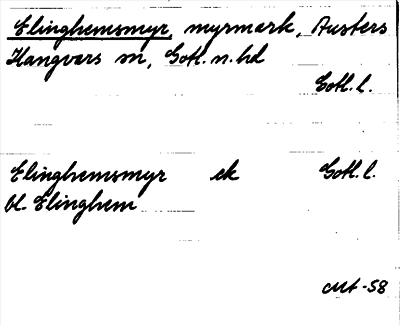 Elinghemsmyr, myrmark, Austers
Hangvars sn, Gotl. n. hd
Gotl. l.
Elinghemsmyr ek Gotl. l.
bl. Elinghem
-58